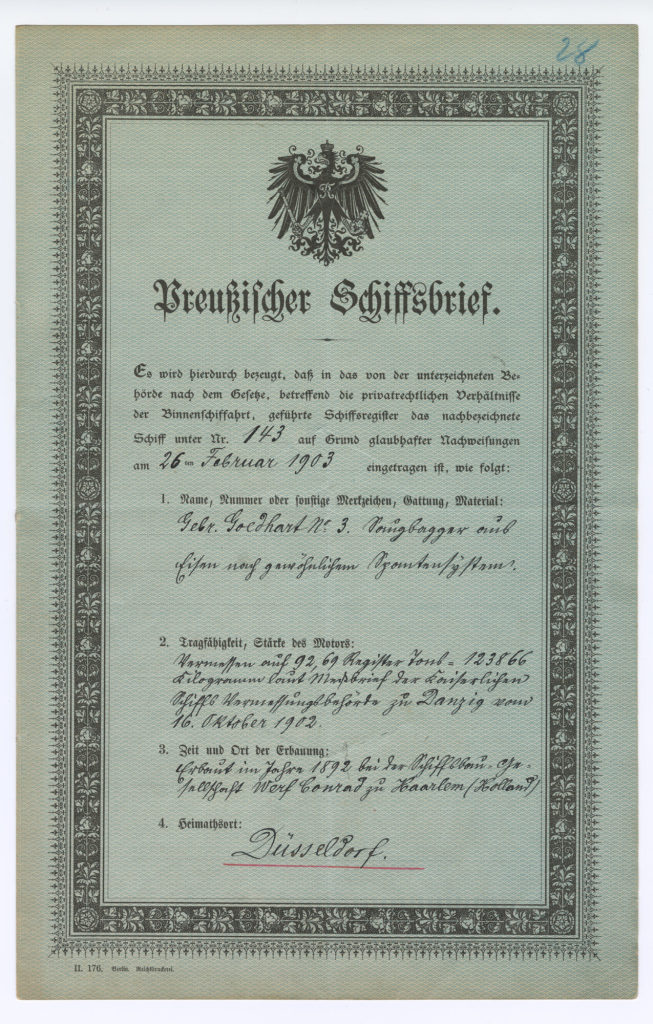 28
Preußischer Schiffsbrief.
Es wird hierdurch bezeugt, daß in das von der unterzeichneten Be-
hörde nach dem Gesetze, betreffend die privatrechtlichen Verhältnisse
der Binnenschiffahrt, geführte Schiffsregister das nachbezeichnete
Schiff unter Nr. 143 auf Grund glaubhafter Nachweisungen
am 26ten Februar 1903 eingetragen ist, wie folgt:
1. Name, Nummer oder sonstige Merkzeichen, Gattung, Material:
Gebr. Goedhart No 3. Saugbagger aus
Eisen nach gewöhnlichem Spantensystem.
2. Tragfähigkeit, Stärke des Motors:
Vermessen auf 92,69 Register Tons = 123866
Kilogramm laut Meßbrief der Kaiserlichen
Schiffs Vermessungsbehörde zu Danzig vom
16. Oktober 1902.
3. Zeit und Ort der Erbauung:
Erbaut im Jahre 1892 bei der Schiffsbau-Ge-
sellschaft Werf Conrad zu Haarlem (Holland)
4. Heimathsort:
Düsseldorf.
II. 176. Berlin. Reichsdruckerei.